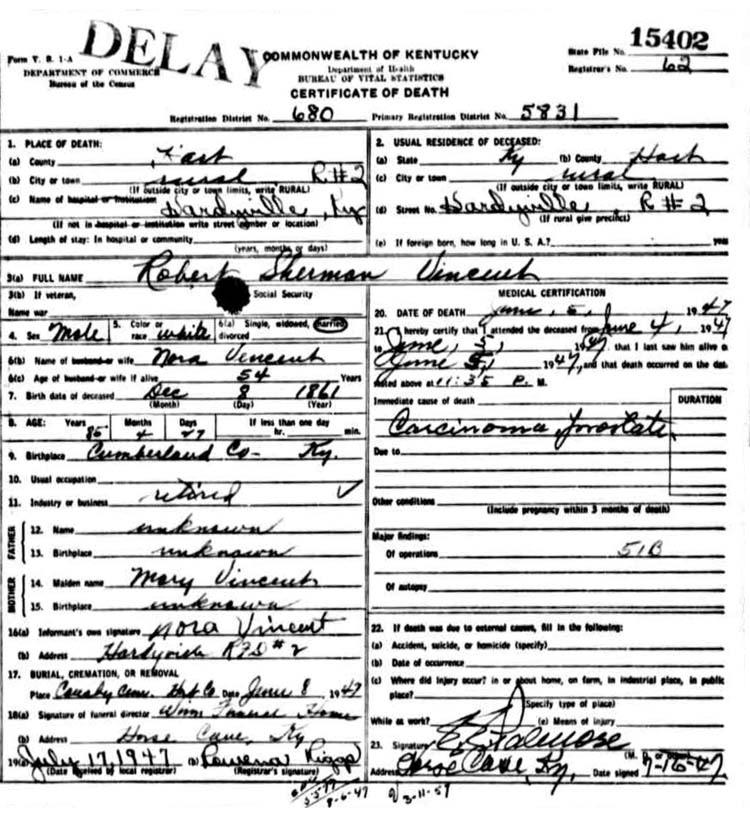 DELAY
Form V. S. 1-A
DEPARTMENT OF COMMERCE
Bureau of the Census
COMMONWEALTH OF KENTUCKY
Department of Health
BUREAU OF VITAL STATISTICS
CERTIFICATE OF DEATH
State File No. 15402
Registrar's No. 62
Registration District No. 680 Primary Registration District No. 5831
1. PLACE OF DEATH:
(a) County Hart
(b) City or town rural R#2
(If outside city or town limits, write RURAL)
(c) Name of hospital or institution: Hardyville, Ky
(If not in hospital or institution write street number or location)
(d) Length of stay: In hospital or community
(years, months or days)
2. USUAL RESIDENCE OF DECEASED:
(a) State Ky (b) County Hart
(c) City or town rural
(If outside city or town limits, write RURAL)
(d) Street No. Hardyville, R#2
(If rural give precinct)
(e) If foreign born, how long in U. S. A.? years
3(a) FULL NAME Robert Sherman Vincent
3(b) If veteran, Social Security
Name war
4. Sex Male 5. Color or race white 6(a) Single, widowed, married divorced
6(b) Name of husband or wife Nora Vincent
6(c) Age of husband or wife if alive 54 Years
7. Birth date of deceased Dec 8 1861
(Month) (Day) (Year)
8. AGE: Years Months Days If less than one day
85 4 27 hr. min.
9. Birthplace Cumberland Co- Ky.
10. Usual occupation
11. Industry or business retired ✓
FATHER
12. Name unknown
13. Birthplace unknown
MOTHER
14. Maiden name Mary Vincent
15. Birthplace unknown
16(a) Informant's own signature Nora Vincent
(b) Address Hardyville RFD #2
17. BURIAL, CREMATION, OR REMOVAL
Place Cem. Hart Co Date June 8, 1947
18(a) Signature of funeral director Winn Funeral Home
(b) Address Horse Cave, Ky
19(a) July 17, 1947 (b) Rowena
(Date received by local registrar) (Registrar's signature)
MEDICAL CERTIFICATION
20. DATE OF DEATH June, 5, 1947
21. I hereby certify that I attended the deceased from June 4, 1947
to June, 5, 1947, that I last saw him alive o
June 5, 1947, and that death occurred on the dat
stated above at 11:35 P. M.
Immediate cause of death
DURATION
Carcinoma, Prostate.
Due to
Other conditions
(Include pregnancy within 3 months of death)
Major findings:
Of operations 51B
Of autopsy
22. If death was due to external causes, fill in the following:
(a) Accident, suicide, or homicide (specify)
(b) Date of occurrence
(c) Where did injury occur? in or about home, on farm, in industrial place, in public
place?
(Specify type of place)
While at work? (e) Means of injury
23. Signature Palmore
(M. D. or
Address Horse Cave, Ky, Date signed 7-16-47
8-6-47 3-11-57